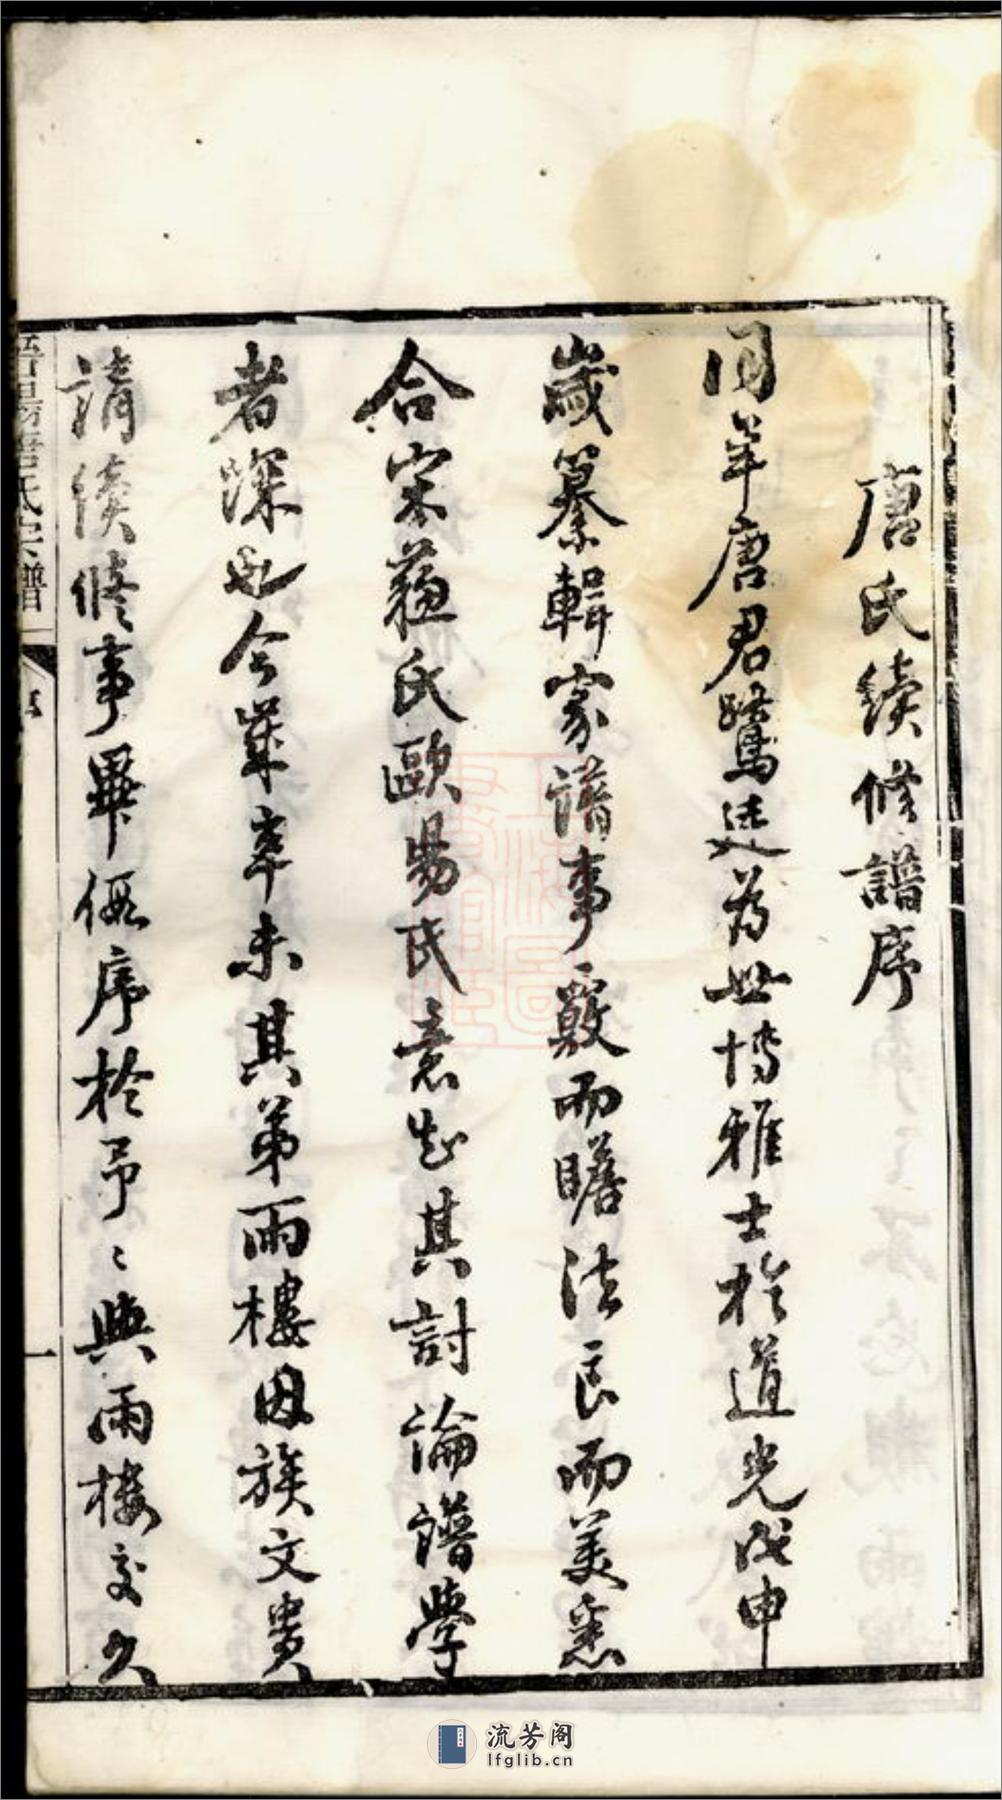 唐氏續修譜序
同年唐君鷺廷为世博雅士於道光戊申
歲纂輯家譜事覈而瞻法良而美悉
合宋蘓氏歐昜氏意知其討論譜學
者深也今年辛未其弟雨樓因族文貴
請續修事畢徵序於予〻與雨樓交久
晋昜唐氏宗譜
序
一
流芳阁
lfglib.cn